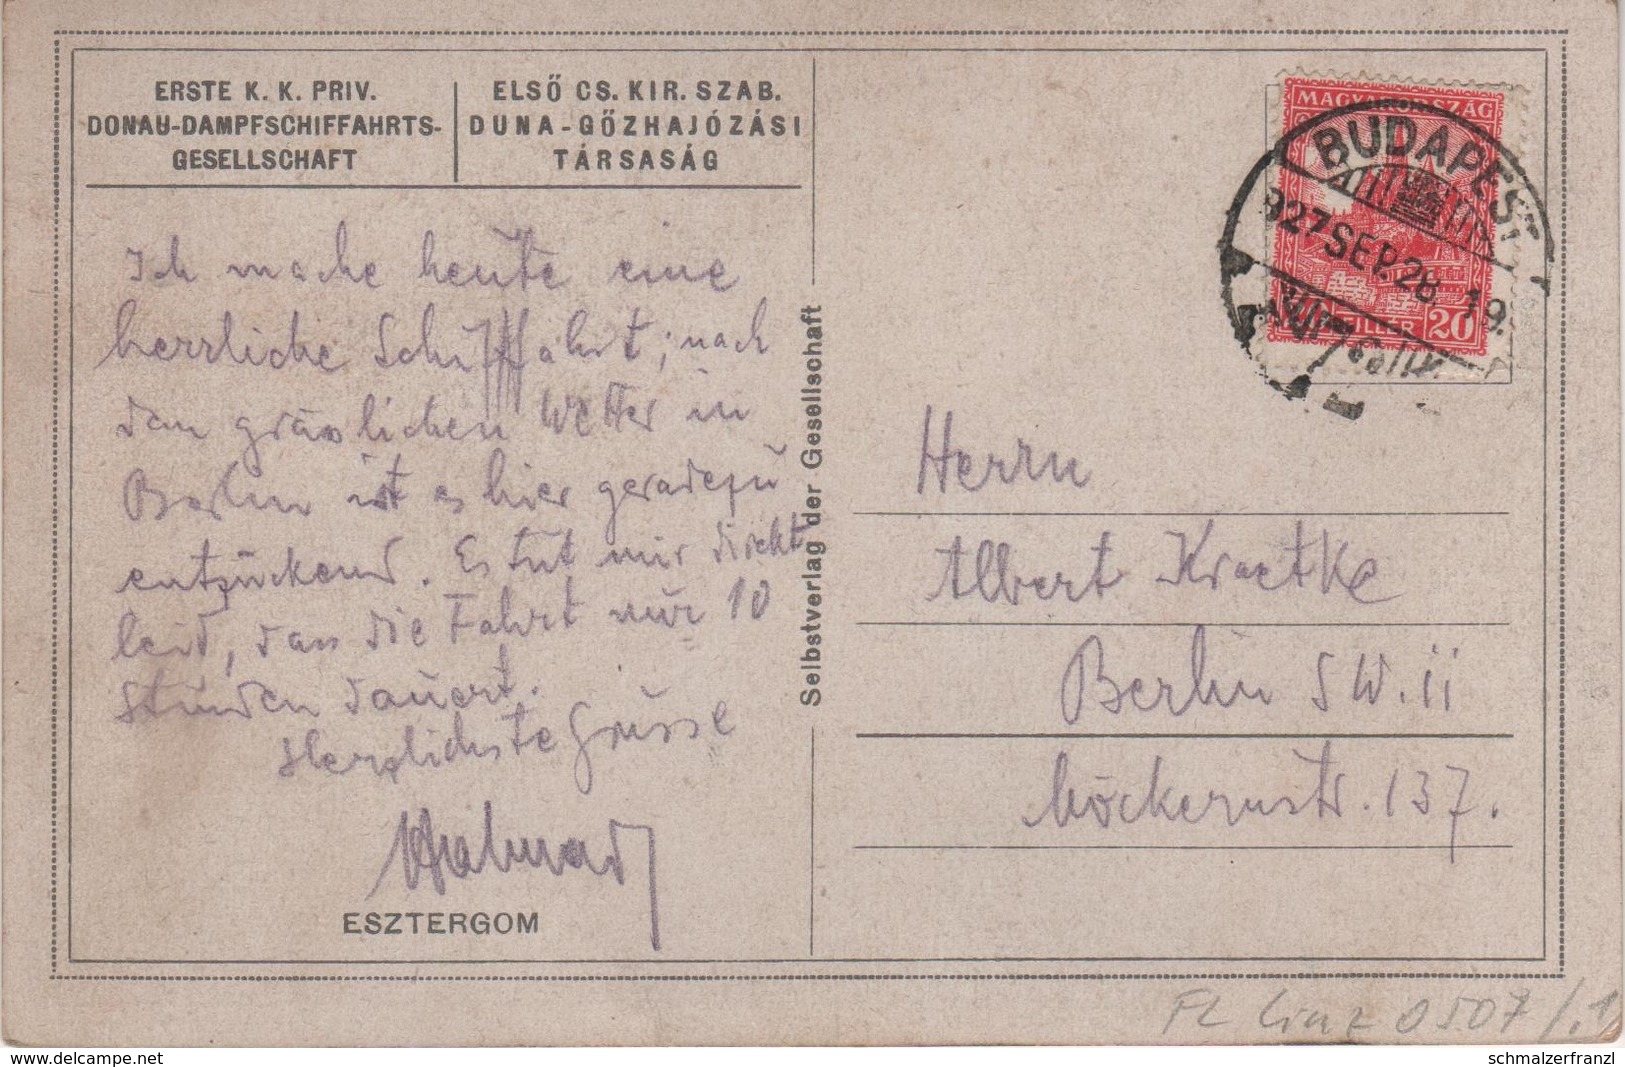 ERSTE K. K. PRIV.
DONAU-DAMPFSCHIFFAHRTS-
GESELLSCHAFT
ELSŐ CS. KIR. SZAB.
DUNA-GŐZHAJÓZÁSI
TÁRSASÁG
Ich mache heute eine
herrliche Schiffahrt; nach
dem grässlichen Wetter in
Berlin ist es hier geradezu
entzückend. Es tut mir direkt
leid, dass die Fahrt nur 10
Stunden dauert.
Herzlichste Grüsse
ESZTERGOM
Selbstverlag der Gesellschaft
MAGYARORSZÁG
FILLÉR 20
BUDAPEST
927 SEP. 26. 19
Herrn
Albert Kraetke
Berlin SW. 11
Möckernstr. 137.
FL Linz 0507/.1
www.delcampe.net
schmalzerfranzl